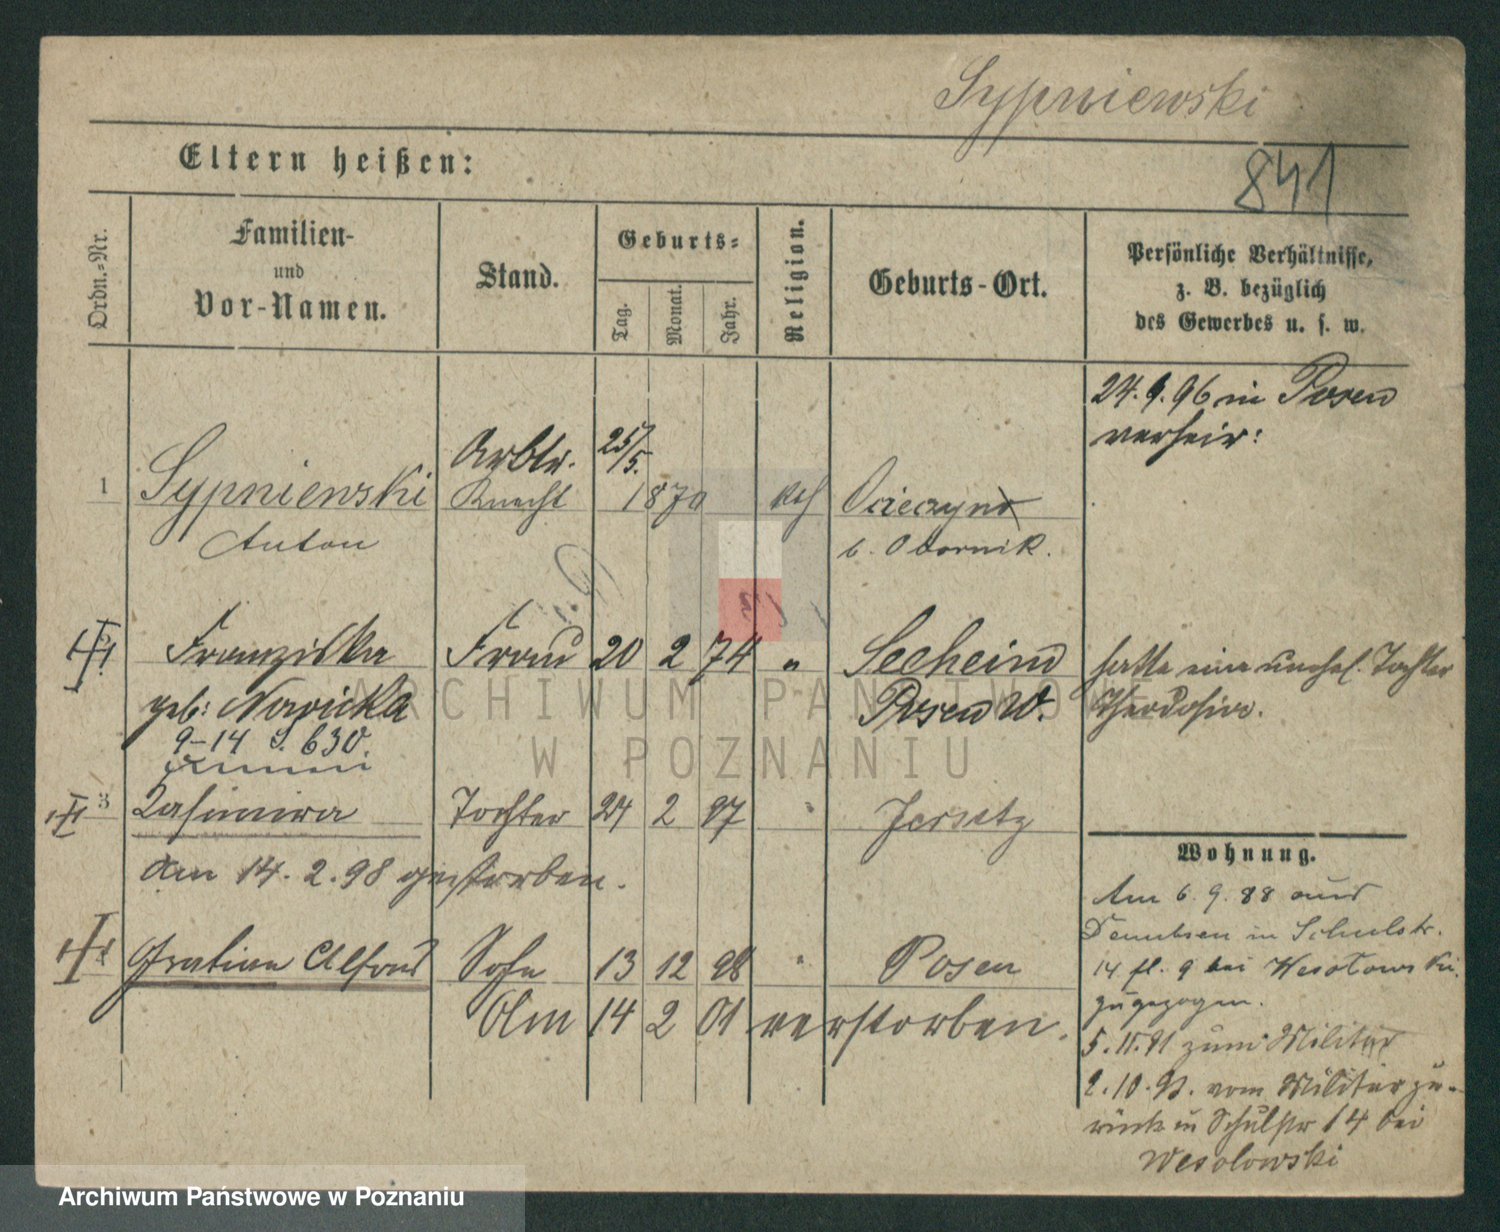 Sypniewski
841
Eltern heißen:
Ordn.-Nr.
Familien-
und
Vor-Namen.
Stand.
Geburts-
Tag.
Monat.
Jahr.
Religion.
Geburts-Ort.
Persönliche Verhältnisse,
z. B. bezüglich
des Gewerbes u. s. w.
24.9.96 in Posen
verheir:
Arbtr. 25/5.
1 Sypniewski Knecht 1870 kath
Anton b. Obornik.
Franziska Frau 20 2 74 " Seeheim hatte eine unehel. Tochter
geb: Nowicka Posen W. Theodosia.
9-14 S. 630.
3 Kasimira Tochter 24 2 97 " Jersitz
Am 14.2.98 gestorben.
Gratian Alfons Sohn 13 12 98 " Posen
Am 14 2 01 verstorben.
Wohnung.
Am 6.9.88 aus
Dembsen in Schulstr.
14 fl. 9 bei Wesolowski
zugezogen.
5.11.91 zum Militär
2.10.93. vom Militär zu-
rück in Schulstr 14 bei
Wesolowski
ARCHIWUM PAŃSTWOWE
W POZNANIU
Archiwum Państwowe w Poznaniu